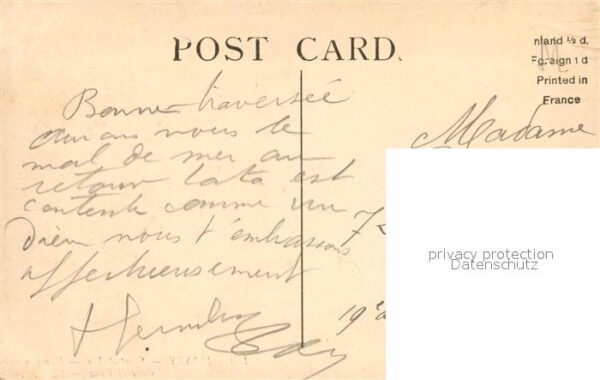 POST CARD.
nland ½ d.
Foreign 1 d
Printed in
France
Bonne traversée
aurons nous le
mal de mer au
retour tata est
contente comme un
dieu nous t'embrassons
affectueusement
Madame
7
19
privacy protection
Datenschutz